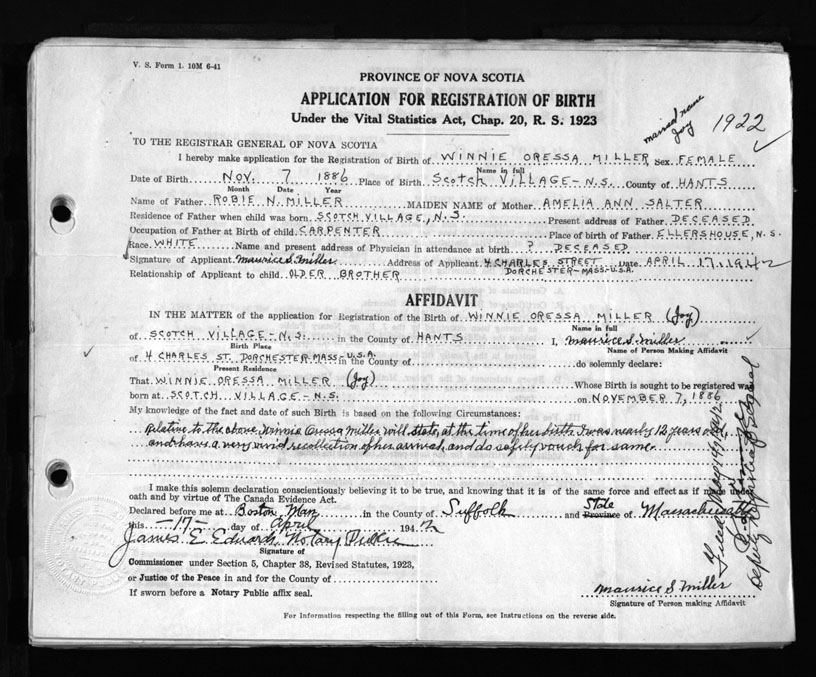 V. S. Form 1. 10M 6-41
PROVINCE OF NOVA SCOTIA
APPLICATION FOR REGISTRATION OF BIRTH
Under the Vital Statistics Act, Chap. 20, R. S. 1923
married name
Joy
1922
TO THE REGISTRAR GENERAL OF NOVA SCOTIA
I hereby make application for the Registration of Birth of WINNIE ORESSA MILLER Sex FEMALE
Name in full
Date of Birth NOV. 7 1886 Place of Birth SCOTCH VILLAGE-N.S. County of HANTS
Month Date Year
Name of Father ROBIE N. MILLER MAIDEN NAME of Mother AMELIA ANN SALTER
Residence of Father when child was born SCOTCH VILLAGE, N.S. Present address of Father DECEASED
Occupation of Father at Birth of child CARPENTER Place of birth of Father ELLERSHOUSE, N.S.
Race WHITE Name and present address of Physician in attendance at birth ? DECEASED
Signature of Applicant Maurice S. Miller Address of Applicant 4 CHARLES STREET Date APRIL 17, 1942
Relationship of Applicant to child OLDER BROTHER DORCHESTER-MASS-U.S.A.
AFFIDAVIT
IN THE MATTER of the application for Registration of the Birth of WINNIE ORESSA MILLER (Joy)
Name in full
of SCOTCH VILLAGE-N.S. in the County of HANTS I, Maurice S. Miller
Birth Place Name of Person Making Affidavit
of 4 CHARLES ST. DORCHESTER MASS-U.S.A. in the County of do solemnly declare:
Present Residence
That WINNIE ORESSA MILLER (Joy) Whose Birth is sought to be registered was
born at SCOTCH VILLAGE-N.S. on NOVEMBER 7, 1886
My knowledge of the fact and date of such Birth is based on the following Circumstances:
Relative to the above, Winnie Oressa Miller will state, at the time of her birth I was nearly 12 years
and have a very vivid recollection of her arrival, and do safely vouch for same.
I make this solemn declaration conscientiously believing it to be true, and knowing that it is of the same force and effect as if made under
oath and by virtue of The Canada Evidence Act.
Declared before me at Boston, Mass in the County of Suffolk and State Province of Massachusetts
this -17- day of April 1942
James E. Edwards Notary Public
Signature of
Commissioner under Section 5, Chapter 38, Revised Statutes, 1923,
or Justice of the Peace in and for the County of
If sworn before a Notary Public affix seal.
Maurice S Miller
Signature of Person making Affidavit
For Information respecting the filling out of this Form, see Instructions on the reverse side.
Deputy Registrar General